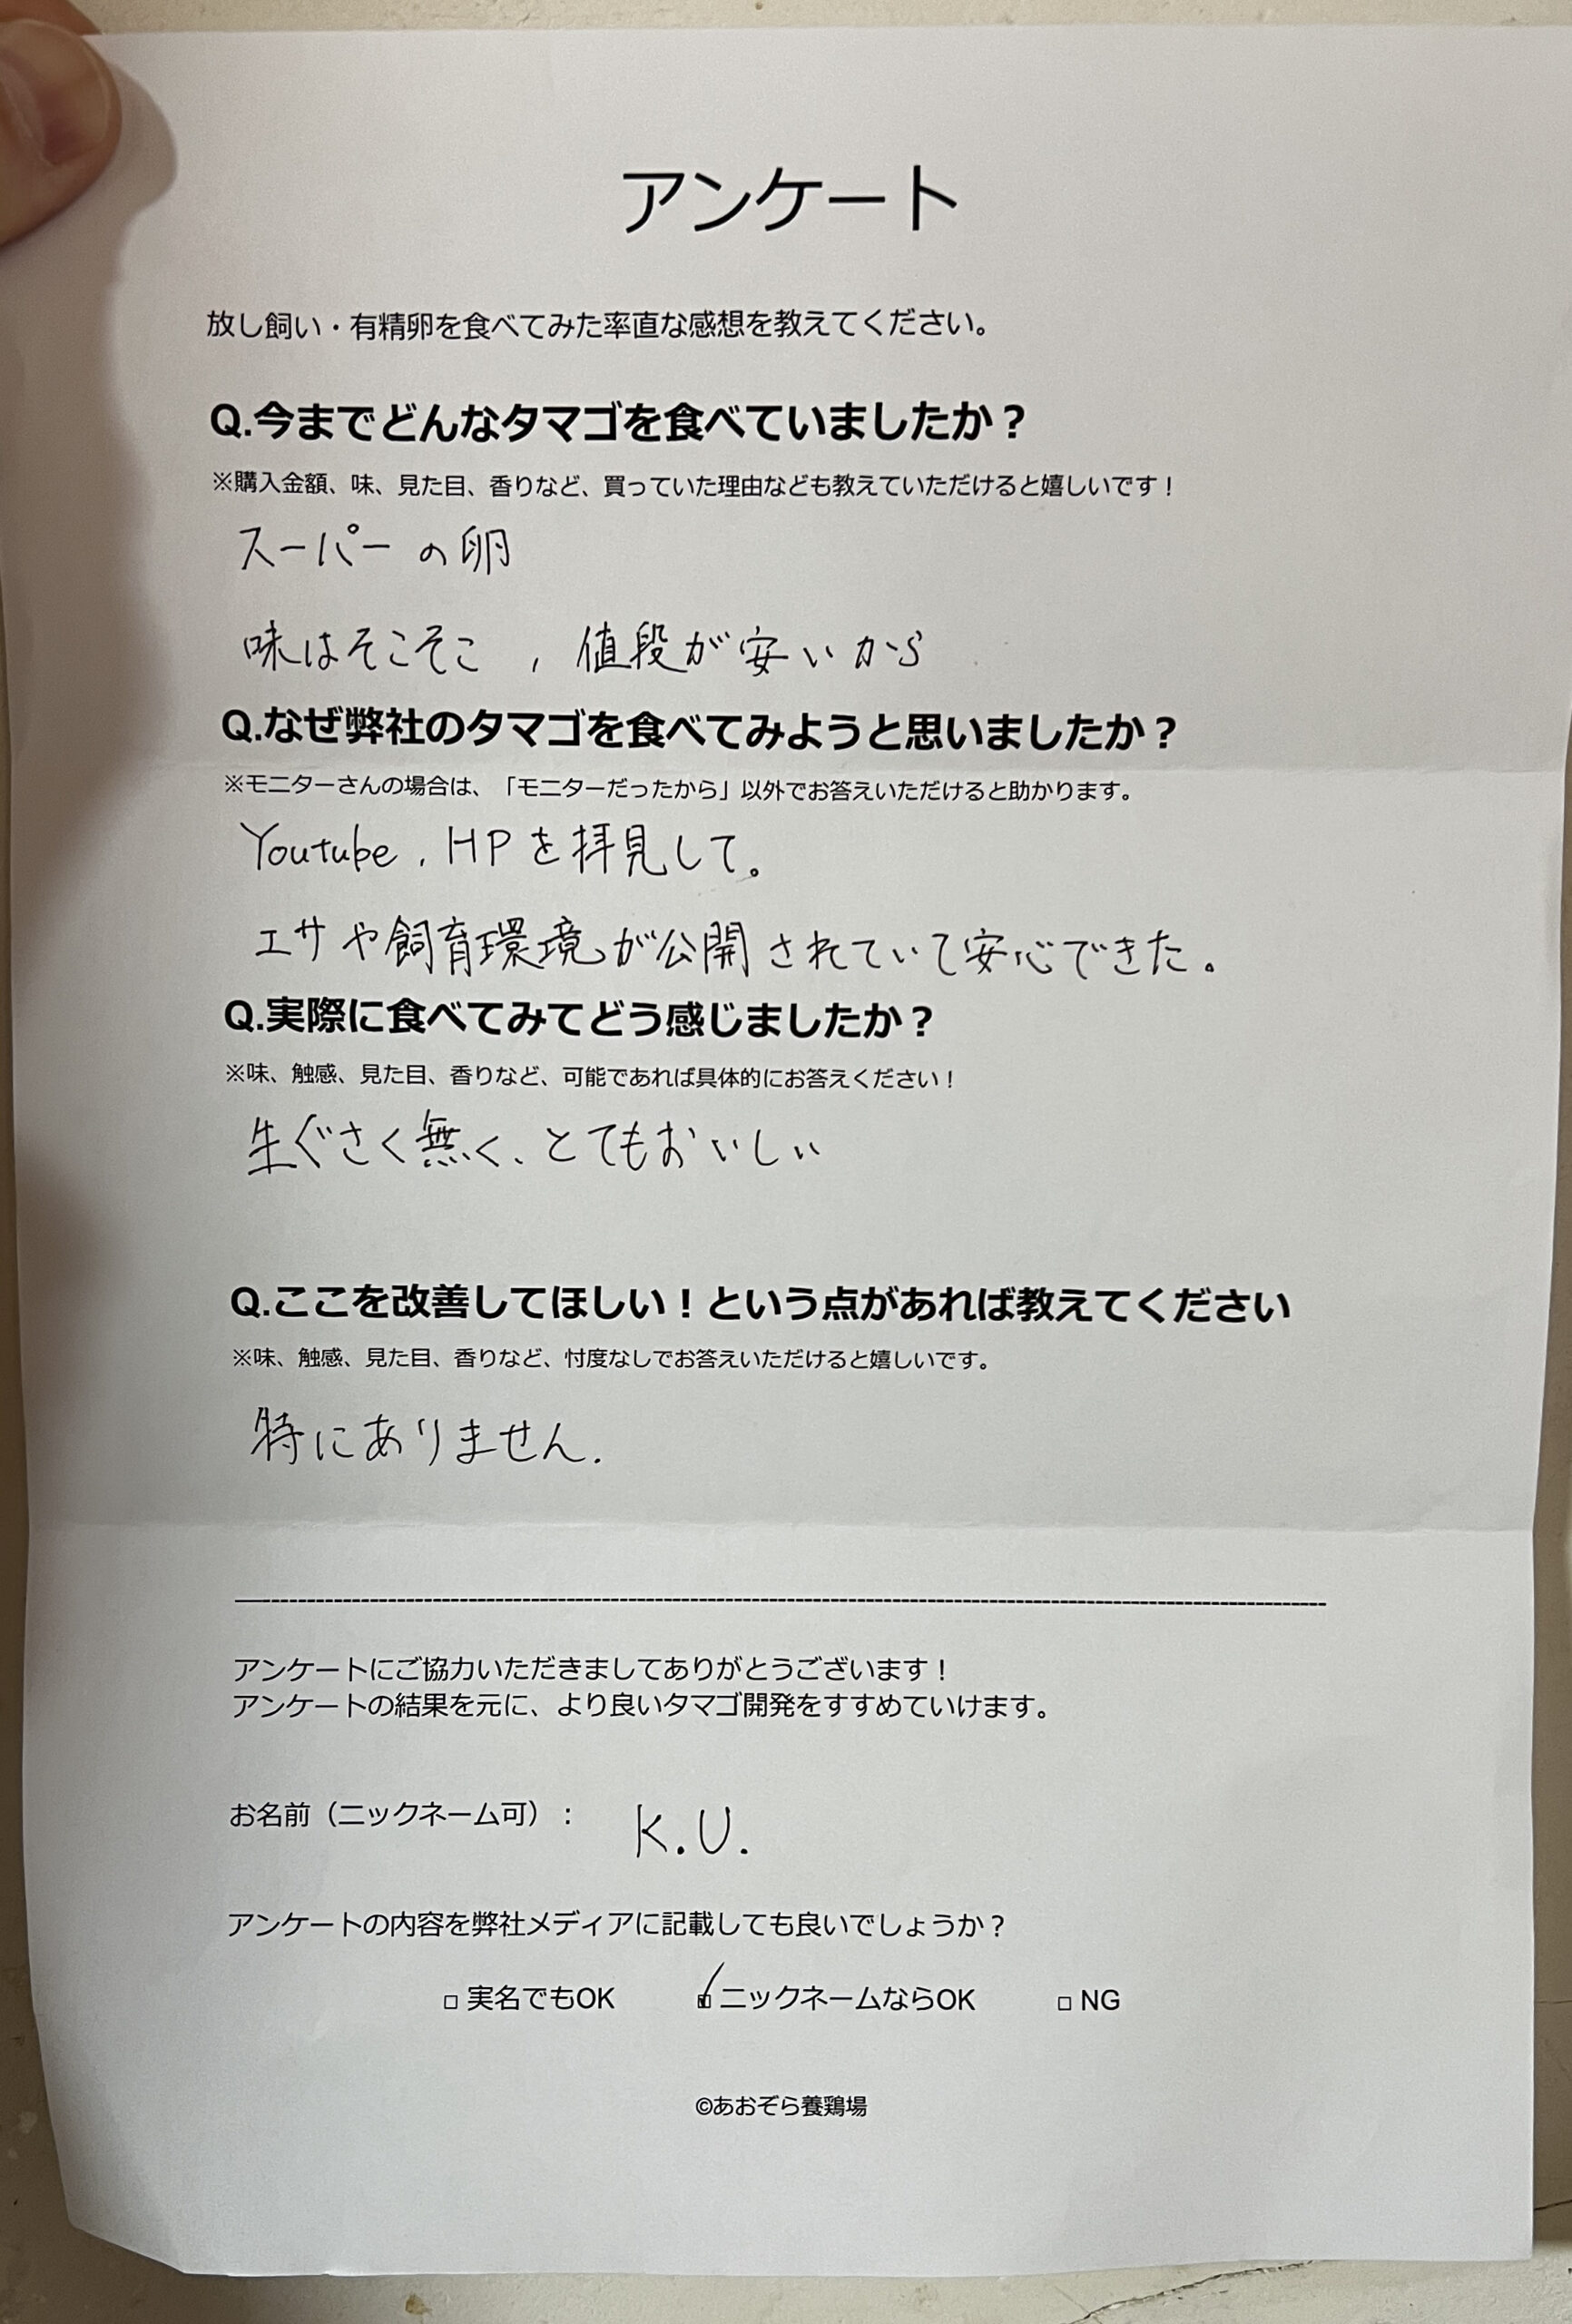 アンケート
放し飼い・有精卵を食べてみた率直な感想を教えてください。
Q.今までどんなタマゴを食べていましたか？
※購入金額、味、見た目、香りなど、買っていた理由なども教えていただけると嬉しいです！
スーパーの卵
味はそこそこ , 値段が安いから
Q.なぜ弊社のタマゴを食べてみようと思いましたか？
※モニターさんの場合は、「モニターだったから」以外でお答えいただけると助かります。
Youtube , HPを拝見して。
エサや飼育環境が公開されていて安心できた。
Q.実際に食べてみてどう感じましたか？
※味、触感、見た目、香りなど、可能であれば具体的にお答えください！
生ぐさく無く、とてもおいしい
Q.ここを改善してほしい！という点があれば教えてください
※味、触感、見た目、香りなど、忖度なしでお答えいただけると嬉しいです。
特にありません.
アンケートにご協力いただきましてありがとうございます！
アンケートの結果を元に、より良いタマゴ開発をすすめていけます。
お名前（ニックネーム可）： K.U.
アンケートの内容を弊社メディアに記載しても良いでしょうか？
□ 実名でもOK ☑ ニックネームならOK □ NG
©あおぞら養鶏場